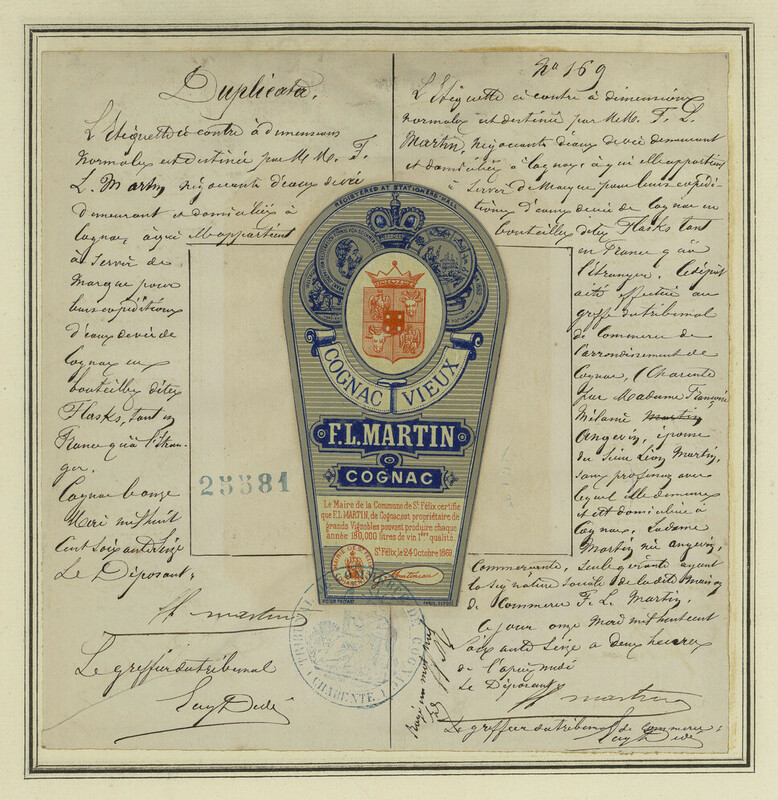 Duplicata.
L'Etiquette ci contre à dimensions
normales est destinée par M M. F.
L. Martin négociants d'eaux de vie
demeurant et domiciliés à
Cognac, à qui elle appartient
à Servir de
Marque pour
leurs expéditions
d'eaux de vie de
Cognac en
bouteilles dites
Flasks, tant en
France qu'à l'étran-
ger.
Cognac le onze
Mars mil huit
Cent Soixante Seize
Le Déposant:
F L martin
Le greffier du tribunal
No 169
L'Etiquette ci contre à dimensions
normales est destinée par M.M. F. L.
Martin, négociants d'eaux de vie demeurant
et domiciliés à Cognac, à qui elle appartient
à Servir de Marque pour leurs expédi-
tions d'eaux de vie de Cognac en
bouteilles dites Flasks tant
en France qu'à
l'étranger. Le dépôt
a été effectué au
greffe du tribunal
de Commerce de
l'arrondissement de
Cognac, (Charente
par Madame Françoise
Mélanie Martin
Angevin, épouse
du Sieur Léon Martin,
sans profession avec
lequel elle demeure
et est domiciliée à
Cognac, la dame
Martin née Angevin,
Commerçante, seule gérante ayant
la signature sociale de la dite Maison
de Commerce F. L. Martin,
ce jour onze Mars mil huit cent
soixante Seize à deux heures
de l'après midi
Le Déposant
F L martin
Le greffier du tribunal de commerce:
REGISTERED AT STATIONERS' HALL
COGNAC VIEUX
F.L. MARTIN
COGNAC
Le Maire de la Commune de St. Félix certifie
que F.L. MARTIN, de Cognac, est propriétaire de
grands Vignobles pouvant produire chaque
année 180,000 litres de vin 1ère qualité.
St. Félix, le 24 Octobre 1869
25581